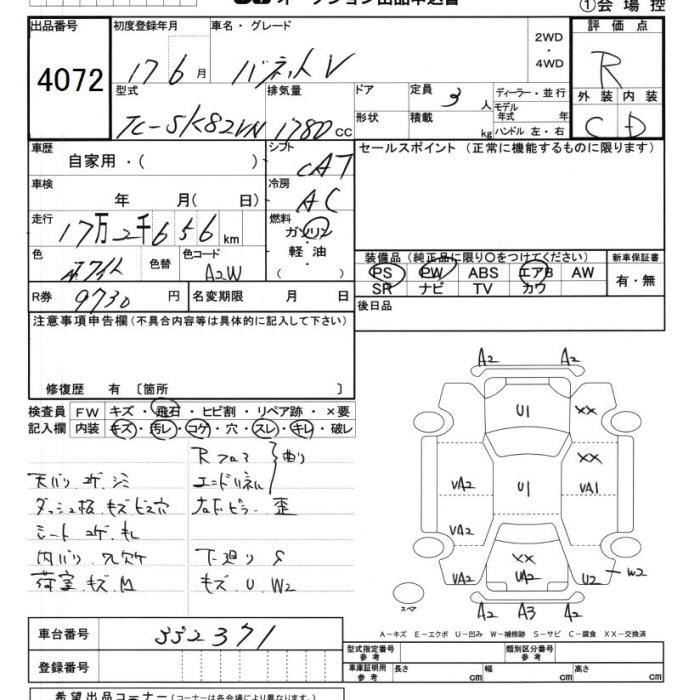 オークション出品申込書
①会場控
出品番号
4072
初度登録年月
17 6月
車名・グレード
バネットV
2WD
・
4WD
評価点
R
型式
TC-SK82VN
排気量
1780 CC
ドア
形状
定員
3 人
積載
kg
ディーラー・並行
モデル
年式 年
ハンドル 左・右
外装
C
内装
D
車歴
自家用・( )
シフト
CAT
セールスポイント (正常に機能するものに限ります)
車検
年 月( 日)
冷房
AC
走行
17万2千656km
燃料
ガソリン
・
軽油
( )
色
ホワイト
色替
色コード
A2W
装備品 (純正品に限り○をつけてください)
PS PW ABS エアB AW
SR ナビ TV カワ
新車保証書
有・無
R券
9730円
名変期限 月 日
後日品
注意事項申告欄 (不具合内容等は具体的に記入して下さい)
修復歴 有 〔箇所 〕
検査員
記入欄
FW キズ・飛石・ヒビ割・リペア跡・×要
内装 キズ・汚レ・コゲ・穴・スレ・キレ・破レ
Rフロア
エンドパネル
曲り
天バリ コゲ シミ
ダッシュ板 キズ ビス穴
左Dピラー 歪
シート コゲ キレ
内バリ ワレ欠ケ
下廻り S
荷室 キズ M
キズ U W2
A2 A2
U1 XX
XX
VA2 U1 VA1
VA2
XX
VA2 UA2 U2 W2
スペア
A2 A3 A2
A－キズ E－エクボ U－凹み W－補修跡 S－サビ C－腐食 XX－交換済
車台番号
352371
型式指定番号
参考
類別区分番号
参考
登録番号
車庫証明用
参考
長さ cm
幅 cm
高さ cm
希望出品コーナー (コーナーは各会場により異なります)